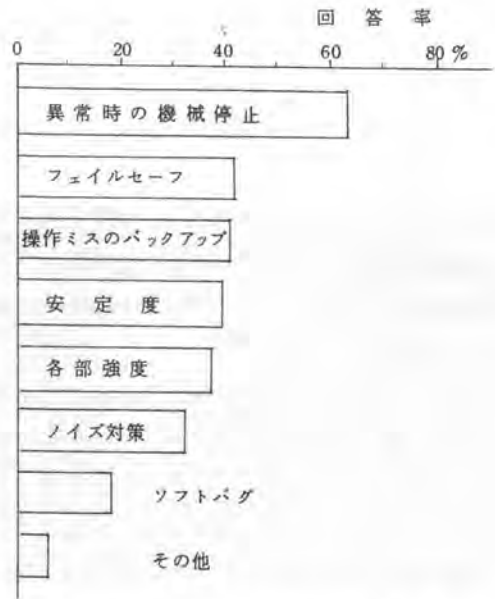 回答率
0 20 40 60 80 %
異常時の機械停止
フェイルセーフ
操作ミスのバックアップ
安定度
各部強度
ノイズ対策
ソフトバグ
その他